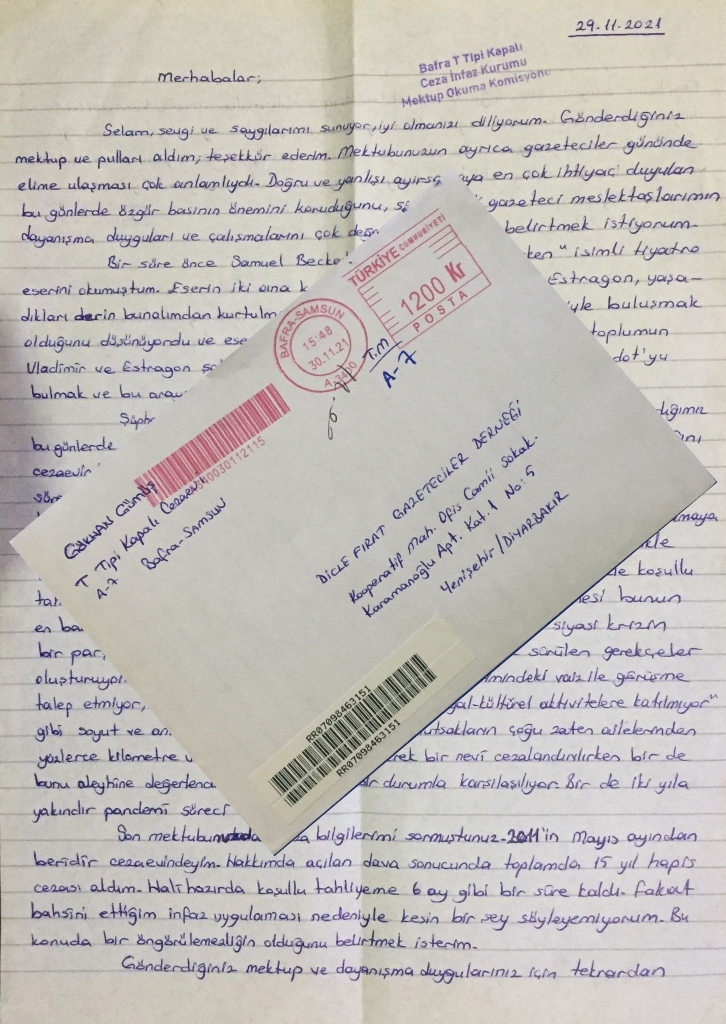 29.11.2021
Bafra T Tipi Kapalı
Ceza İnfaz Kurumu
Mektup Okuma Komisyonu
Merhabalar;
Selam, sevgi ve saygılarımı sunuyor, iyi olmanızı diliyorum. Gönderdiğiniz
mektup ve pulları aldım, teşekkür ederim. Mektubunuzun ayrıca gazeteciler gününde
elime ulaşması çok anlamlıydı. Doğru ve yanlışı ayırsa ya en çok ihtiyaç duyulan
bu günlerde özgür basının önemini koruduğunu, gazeteci meslektaşlarımın
dayanışma duyguları ve çalışmalarını çok değ belirtmek istiyorum.
Bir süre önce Samuel Becke ken" isimli tiyatro
eserini okumuştum. Eserin iki ana k Estragon, yaşa-
dıkları derin bunalımdan kurtulm yle buluşmak
olduğunu düşünüyordu ve ese toplumun
Vladimir ve Estragon dot'yu
bulmak ve bu arau
Şüph dığımız
bu günlerde
cezaevin
maya
kle
le koşullu
tah esi bunun
en ba siyasi krizin
bir par, sürülen gerekçeler
oluşturuyor. mindeki vaiz ile görüşme
talep etmiyor, yal-kültürel aktivitelere katılmıyor"
gibi soyut ve an utsakların çoğu zaten ailelerinden
yüzlerce kilometre u rek bir nevi cezalandırılırken bir de
bunu aleyhine değerlend ar durumla karşılaşılıyor. Bir de iki yıla
yakındır pandemi süreci
Son mektubunuzda za bilgilerimi sormuştunuz. 2011'in Mayıs ayından
beridir cezaevindeyim. Hakkımda açılan dava sonucunda toplamda 15 yıl hapis
cezası aldım. Halihazırda koşullu tahliyeme 6 ay gibi bir süre kaldı. Fakat
bahsini ettiğim infaz uygulaması nedeniyle kesin bir şey söyleyemiyorum. Bu
konuda bir öngörülemezliğin olduğunu belirtmek isterim.
Gönderdiğiniz mektup ve dayanışma duygularınız için tekrardan
TÜRKİYE CUMHURİYETİ
1200 Kr
POSTA
BAFRA-SAMSUN
15:48
30.11.21
T.M
A-7
GÖKHAN GÜMÜŞ
T Tipi Kapalı Cezaevi
A-7 Bafra-SAMSUN
DİCLE FIRAT GAZETECİLER DERNEĞİ
Kooperatif Mah. Ofis Camii Sokak.
Karamanoğlu Apt. Kat:1 No:5
Yenişehir/DİYARBAKIR
RR07098463151
RR07098463151